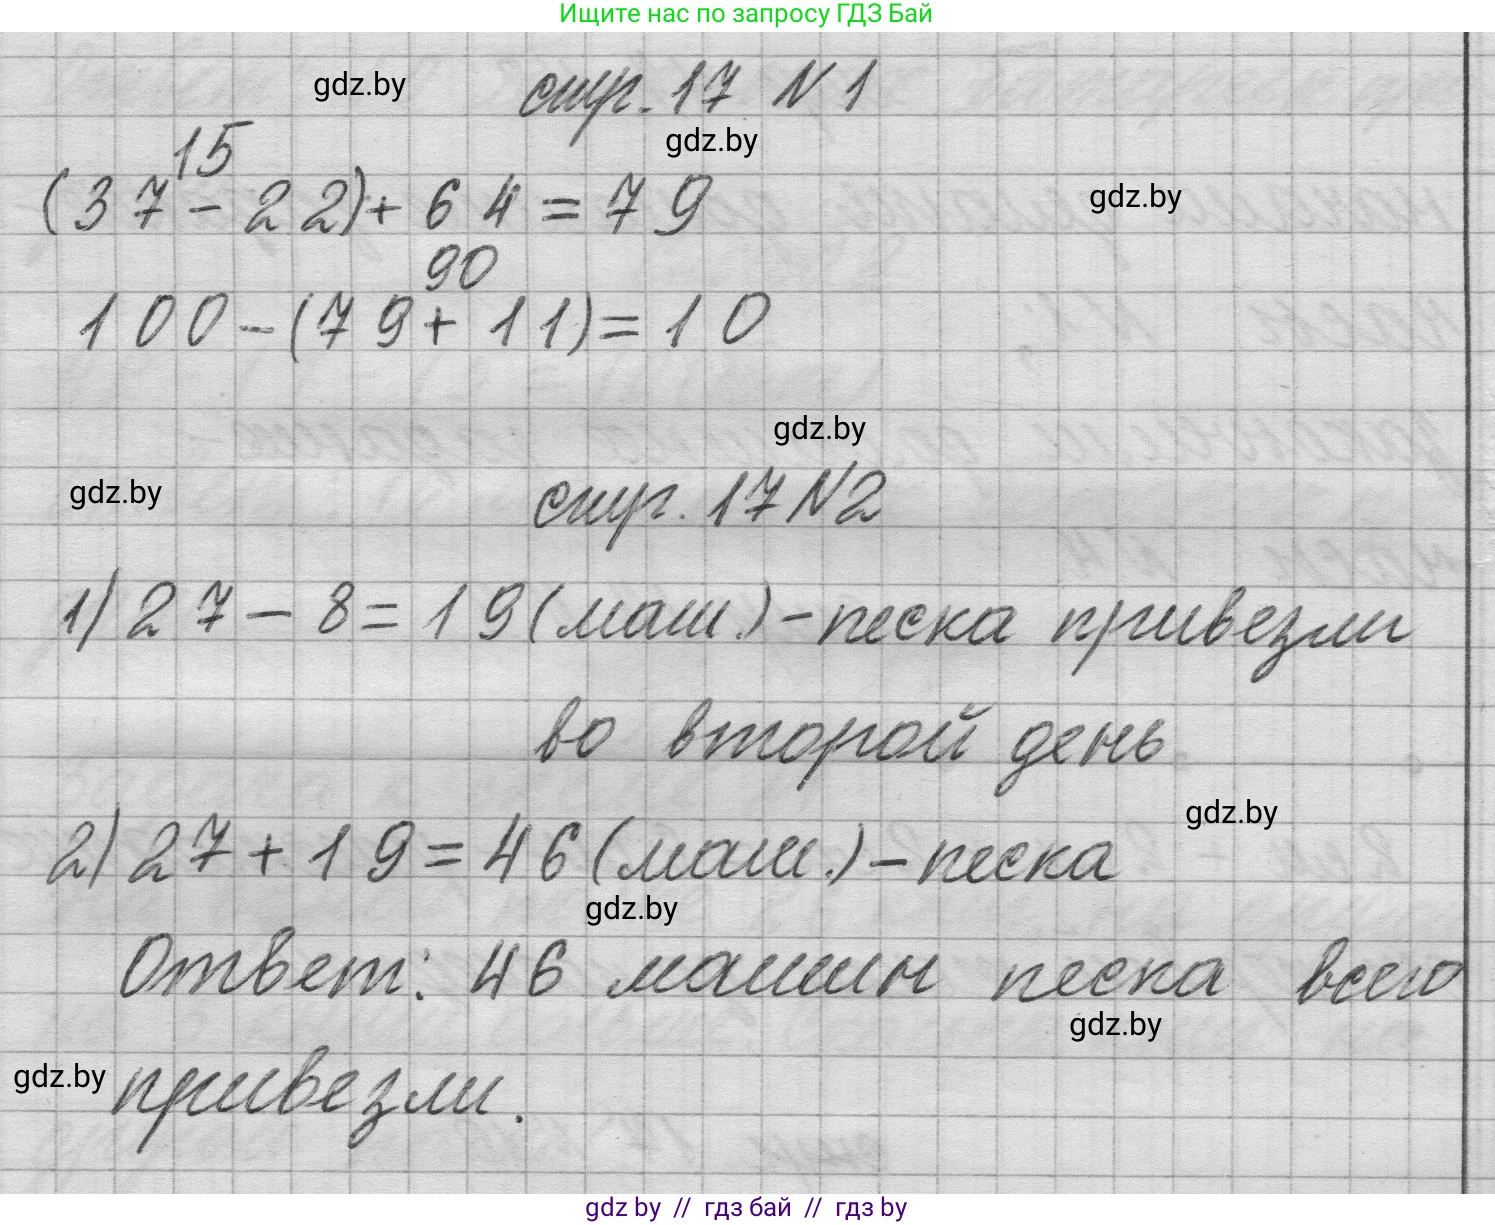 Ищите нас по запросу ГДЗ Бай
gdz.by стр. 17 N 1
gdz.by
15
(37 - 22) + 64 = 79
gdz.by
90
100 - (79 + 11) = 10
gdz.by
gdz.by стр. 17 N2
1) 27 - 8 = 19 (маш.) - песка привезли
во второй день.
gdz.by
2) 27 + 19 = 46 (маш.) - песка
gdz.by
Ответ: 46 машин песка всего
gdz.by
gdz.by привезли.
gdz by // гдз бай // гдз by